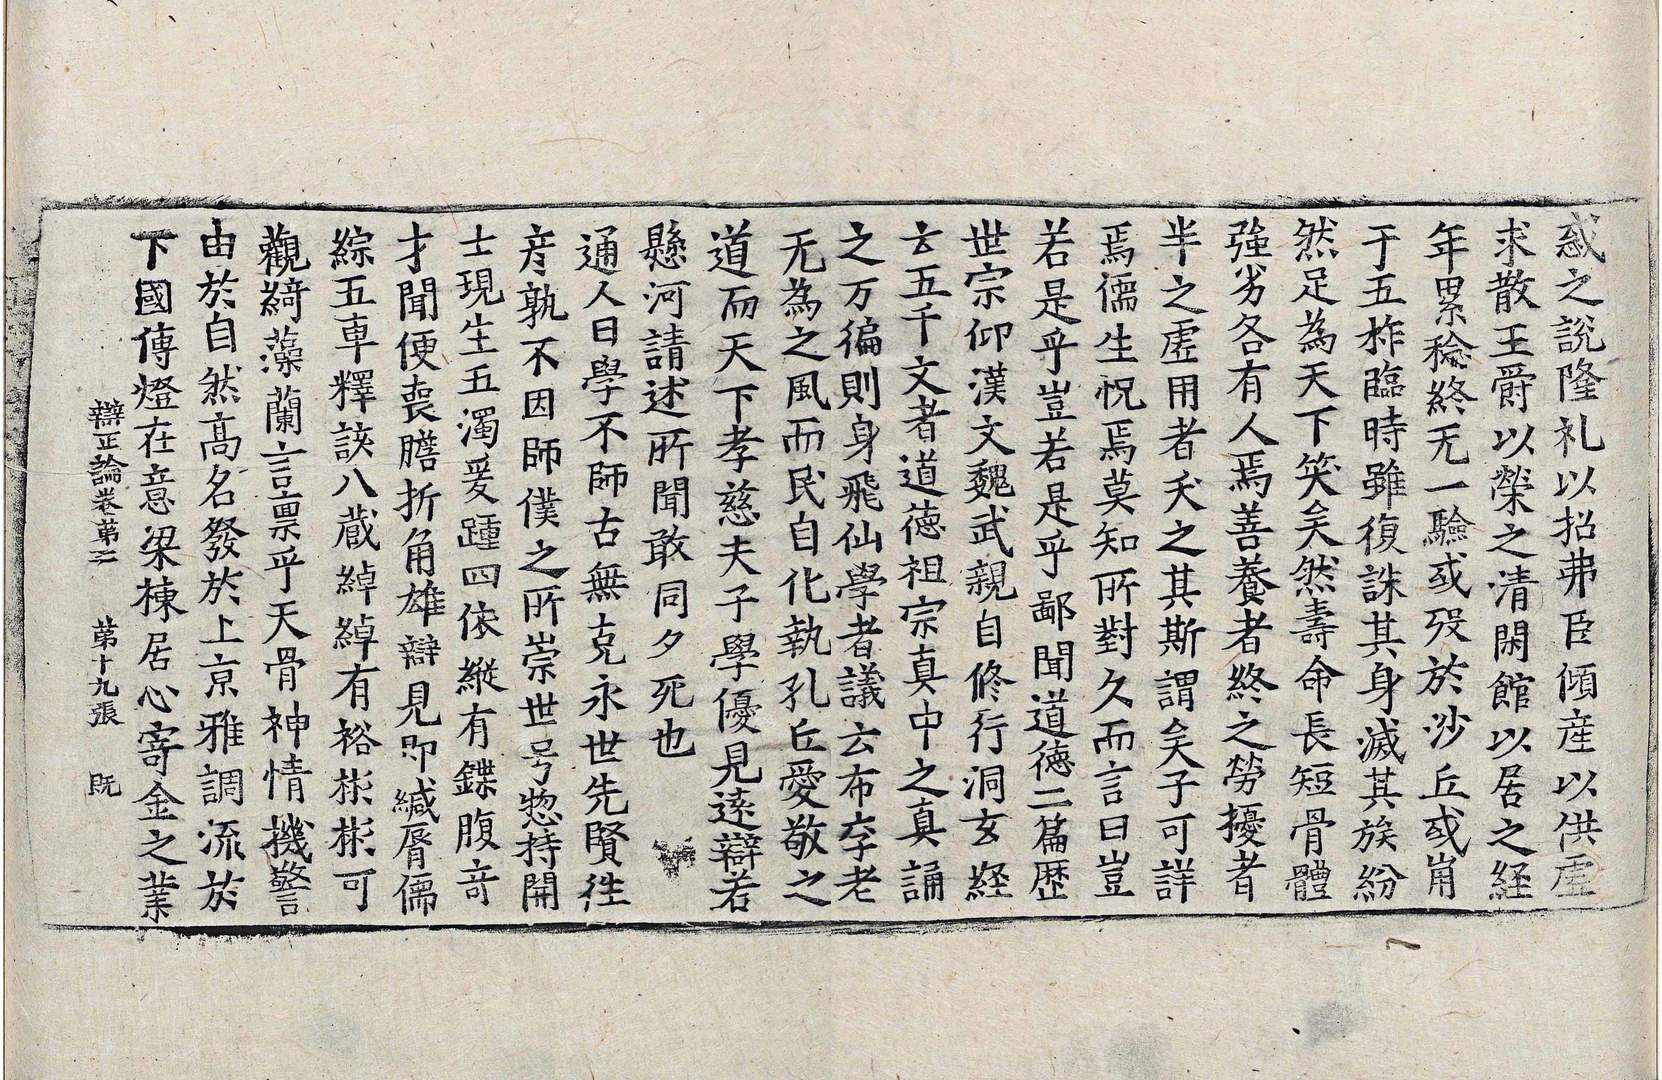 惑之說隆礼以招弗臣傾産以供虛
求散王爵以榮之清閑館以居之経
年累稔終无一驗或歿於沙丘或崩
于五柞臨時雖復誅其身滅其族紛
然足為天下笑矣然壽命長短骨體
強劣各有人焉善養者終之勞擾者
半之虛用者夭之其斯謂矣子可詳
焉儒生怳焉莫知所對久而言曰豈
若是乎豈若是乎鄙聞道德二篇歴
世宗仰漢文魏武親自修行洞玄経
云五千文者道德祖宗真中之真誦
之万徧則身飛仙學者議云布李老
无為之風而民自化執孔丘愛敬之
道而天下孝慈夫子學優見遠辯若
懸河請述所聞敢同夕死也
通人曰學不師古無克永世先賢徃
彦孰不因師僕之所崇世号惣持開
士現生五濁爰踵四依縱有鍱腹奇
才聞便喪膽折角雄辯見即緘脣儒
綜五車釋該八蔵綽綽有裕彬彬可
觀綺藻蘭言禀乎天骨神情機警
由於自然高名發於上京雅調流於
下國傳燈在意梁棟居心寄金之業
辯正論卷第二 第十九張 既